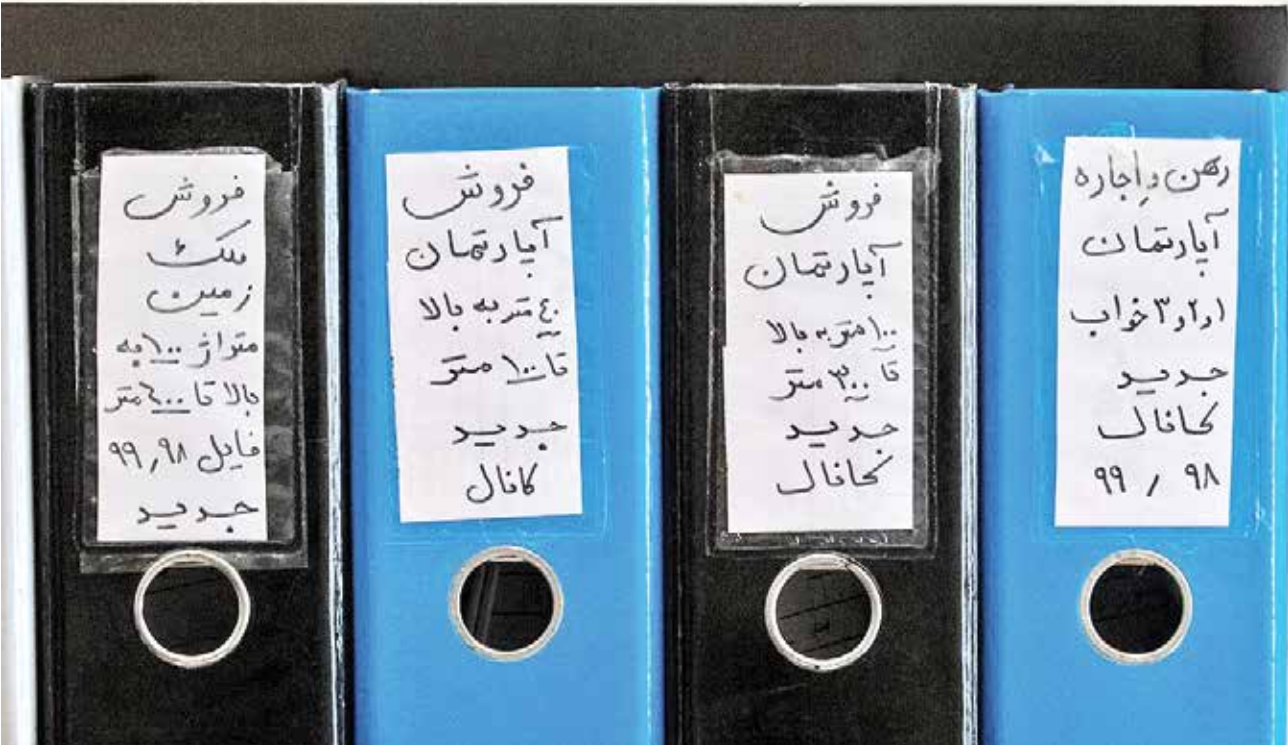 رهن و اجاره
آپارتمان
۱و۲و۳ خواب
جدید
کانال
۹۸ / ۹۹
فروش
آپارتمان
۱۰۰ متر به بالا
تا ۳۰۰ متر
جدید
کانال
فروش
آپارتمان
٤۰ متر به بالا
تا ۱۰۰ متر
جدید
کانال
فروش
ملک
زمین
متراژ ۱۰۰ به
بالا تا متر
فایل ۹۸٫۹۹
جدید